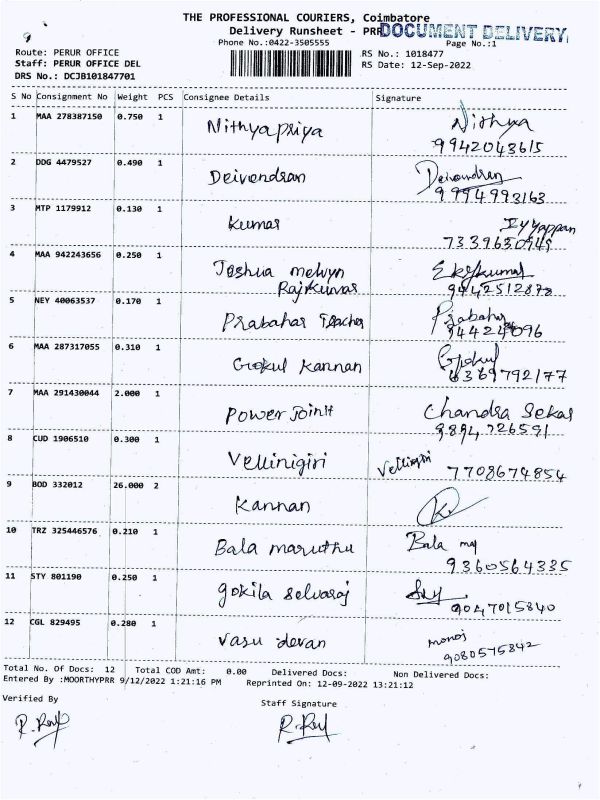 THE PROFESSIONAL COURIERS, Coimbatore
Delivery Runsheet - PRR DOCUMENT DELIVERY
Phone No.:0422-3505555 Page No.:1
Route: PERUR OFFICE RS No.: 1018477
Staff: PERUR OFFICE DEL RS Date: 12-Sep-2022
DRS No.: DCJB101847701
S No Consignment No Weight PCS Consignee Details Signature
1 MAA 278387150 0.750 1 Nithyapriya Nithya
9942043615
2 DDG 4479527 0.490 1 Deivendran Deivendran
9994993163
3 MTP 1179912 0.130 1 Kumar Iyyappan
7339630949
4 MAA 942243656 0.250 1 Joshua melvyn
Rajkumar 9442512878
5 NEY 40063537 0.170 1 Prabahar Teacher Prabahar
6 MAA 287317055 0.310 1 Gokul Kannan Gokul
6369792177
7 MAA 291430044 2.000 1 Power Joint Chandra Sekar
9894726591
8 CUD 1906510 0.300 1 Vellinigiri Vellingiri 7708674854
9 BOD 332012 26.000 2 Kannan K
10 TRZ 325446576 0.210 1 Bala maruthu Bala ma
9360564335
11 STY 801190 0.250 1 gokila selvaraj
9047015840
12 CGL 829495 0.280 1 Vasu devan manoj
9080575842
Total No. Of Docs: 12 Total COD Amt: 0.00 Delivered Docs: Non Delivered Docs:
Entered By :MOORTHYPRR 9/12/2022 1:21:16 PM Reprinted On: 12-09-2022 13:21:12
Verified By Staff Signature